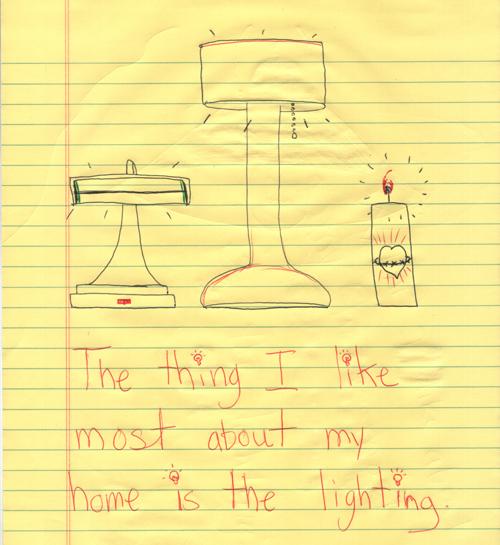 The thing I like
most about my
home is the lighting.